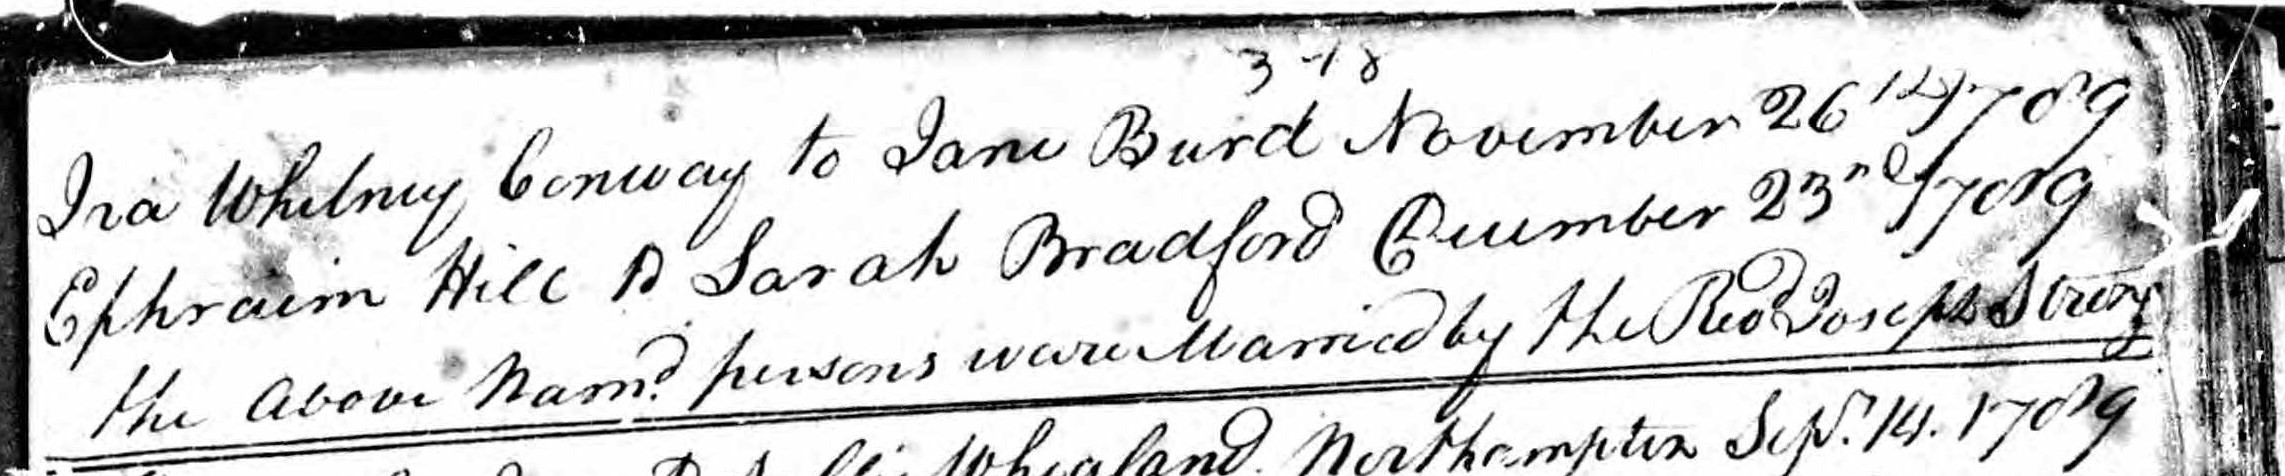 3-18
Ira Whitney Conway to Jane Burd November 26th 1789
Ephraim Hill D Sarah Bradford December 23rd 1789
the above Namd persons ware Married by the Revd Joseph Strong
Whealand Northampton Sepr. 14. 1789